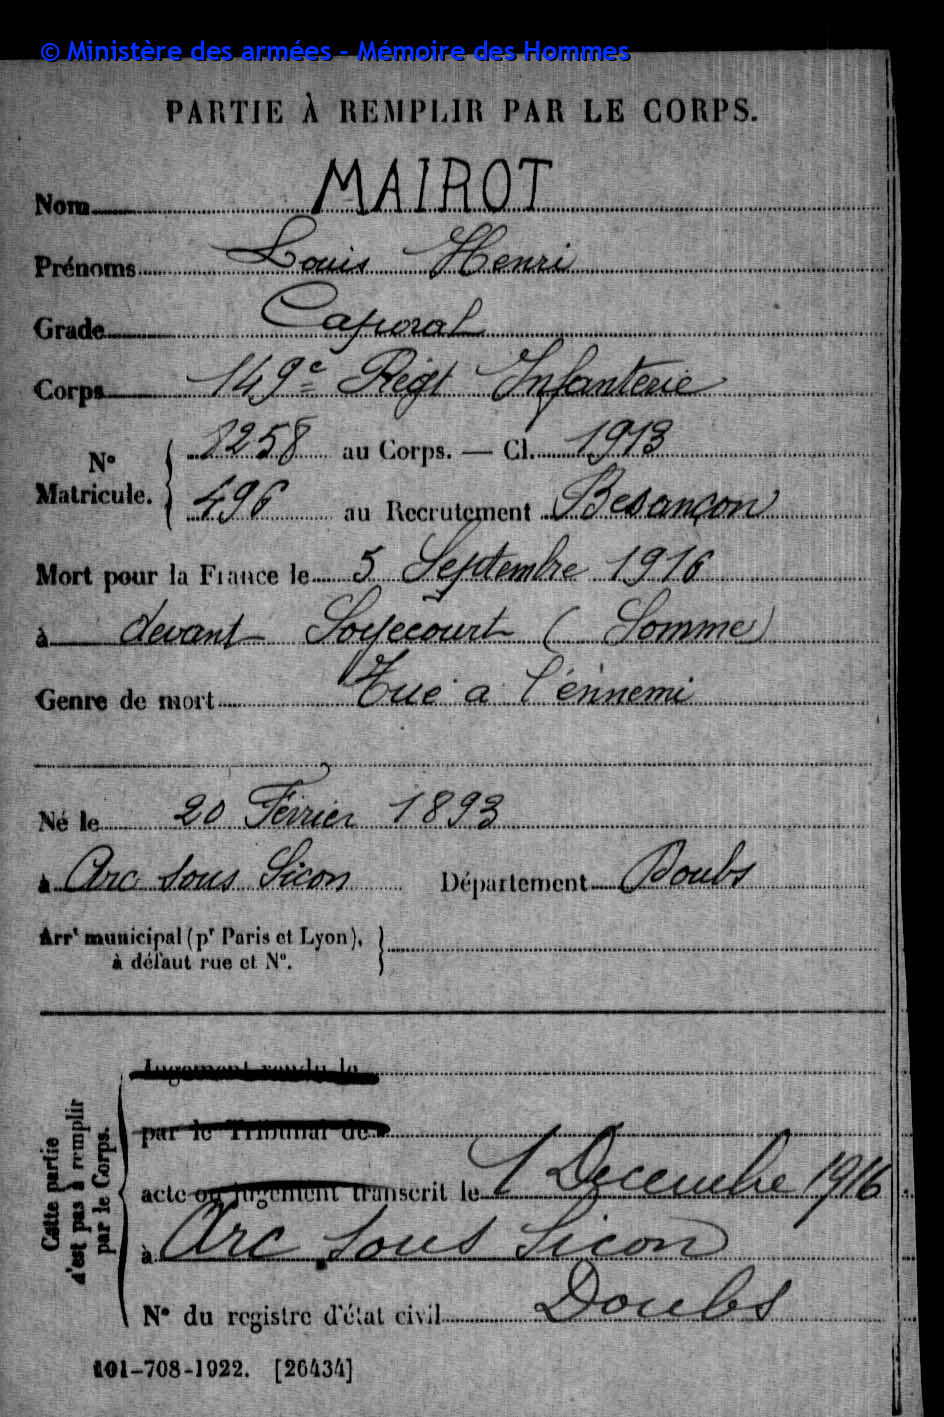 © Ministère des armées - Mémoire des Hommes
PARTIE À REMPLIR PAR LE CORPS.
Nom MAIROT
Prénoms Louis Henri
Grade Caporal
Corps 149e Régt Infanterie
N° Matricule. 8258 au Corps. — Cl. 1913
496 au Recrutement Besançon
Mort pour la France le 5 Septembre 1916
à devant Soyecourt (Somme)
Genre de mort Tué a l'énnemi
Né le 20 Février 1893
à Arc sous Sicon Département Doubs
Arrt municipal (pr Paris et Lyon),
à défaut rue et N°.
Cette partie
n'est pas à remplir
par le Corps.
Jugement rendu le
par le Tribunal de
acte ou jugement transcrit le 1 Decembre 1916
à Arc sous Sicon
N° du registre d'état civil Doubs
101-708-1922. [26434]